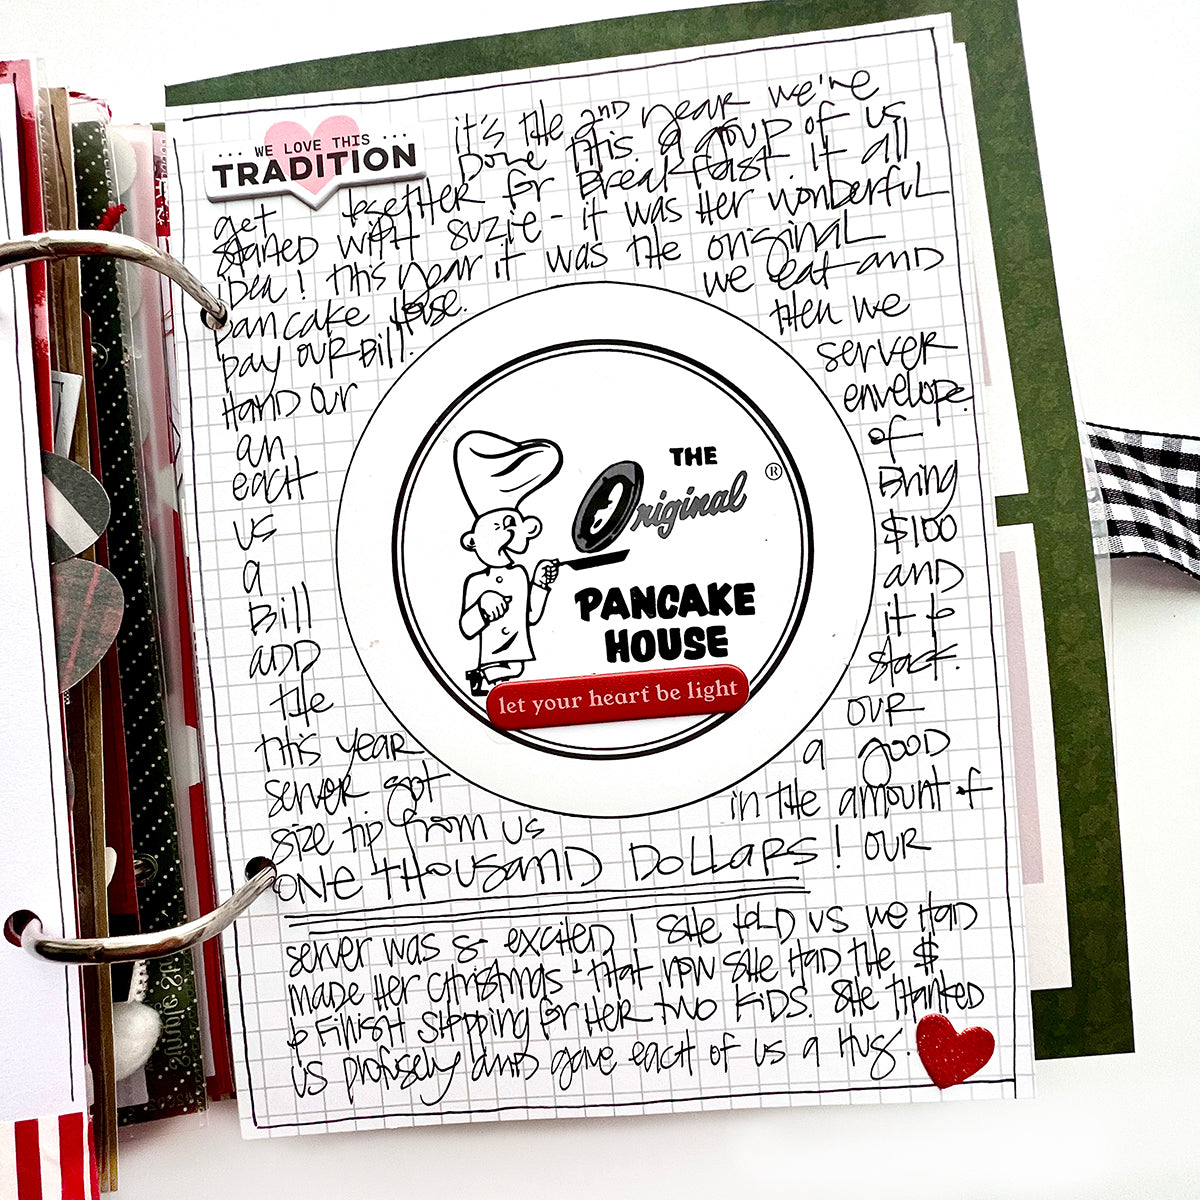 ... WE LOVE THIS ...
TRADITION
it's the 2nd year we've
done this. a group of us
get together for Breakfast. it all
started with Suzie - it was Her wonderful
idea! this year it was the original
pancake House. we eat and
pay our Bill. then we
Hand our server
an envelope.
each of
us Bring
a $100
Bill and
add it to
the stack.
this year our
server got a good
size tip from us in the amount of
ONE THOUSAND DOLLARS! OUR
server was so excited! She told us we Had
made Her Christmas + that now she Had the $
to Finish Shopping for Her two Kids. She thanked
us profusely and gave each of us a Hug.
THE
Original ®
PANCAKE
HOUSE
let your heart be light